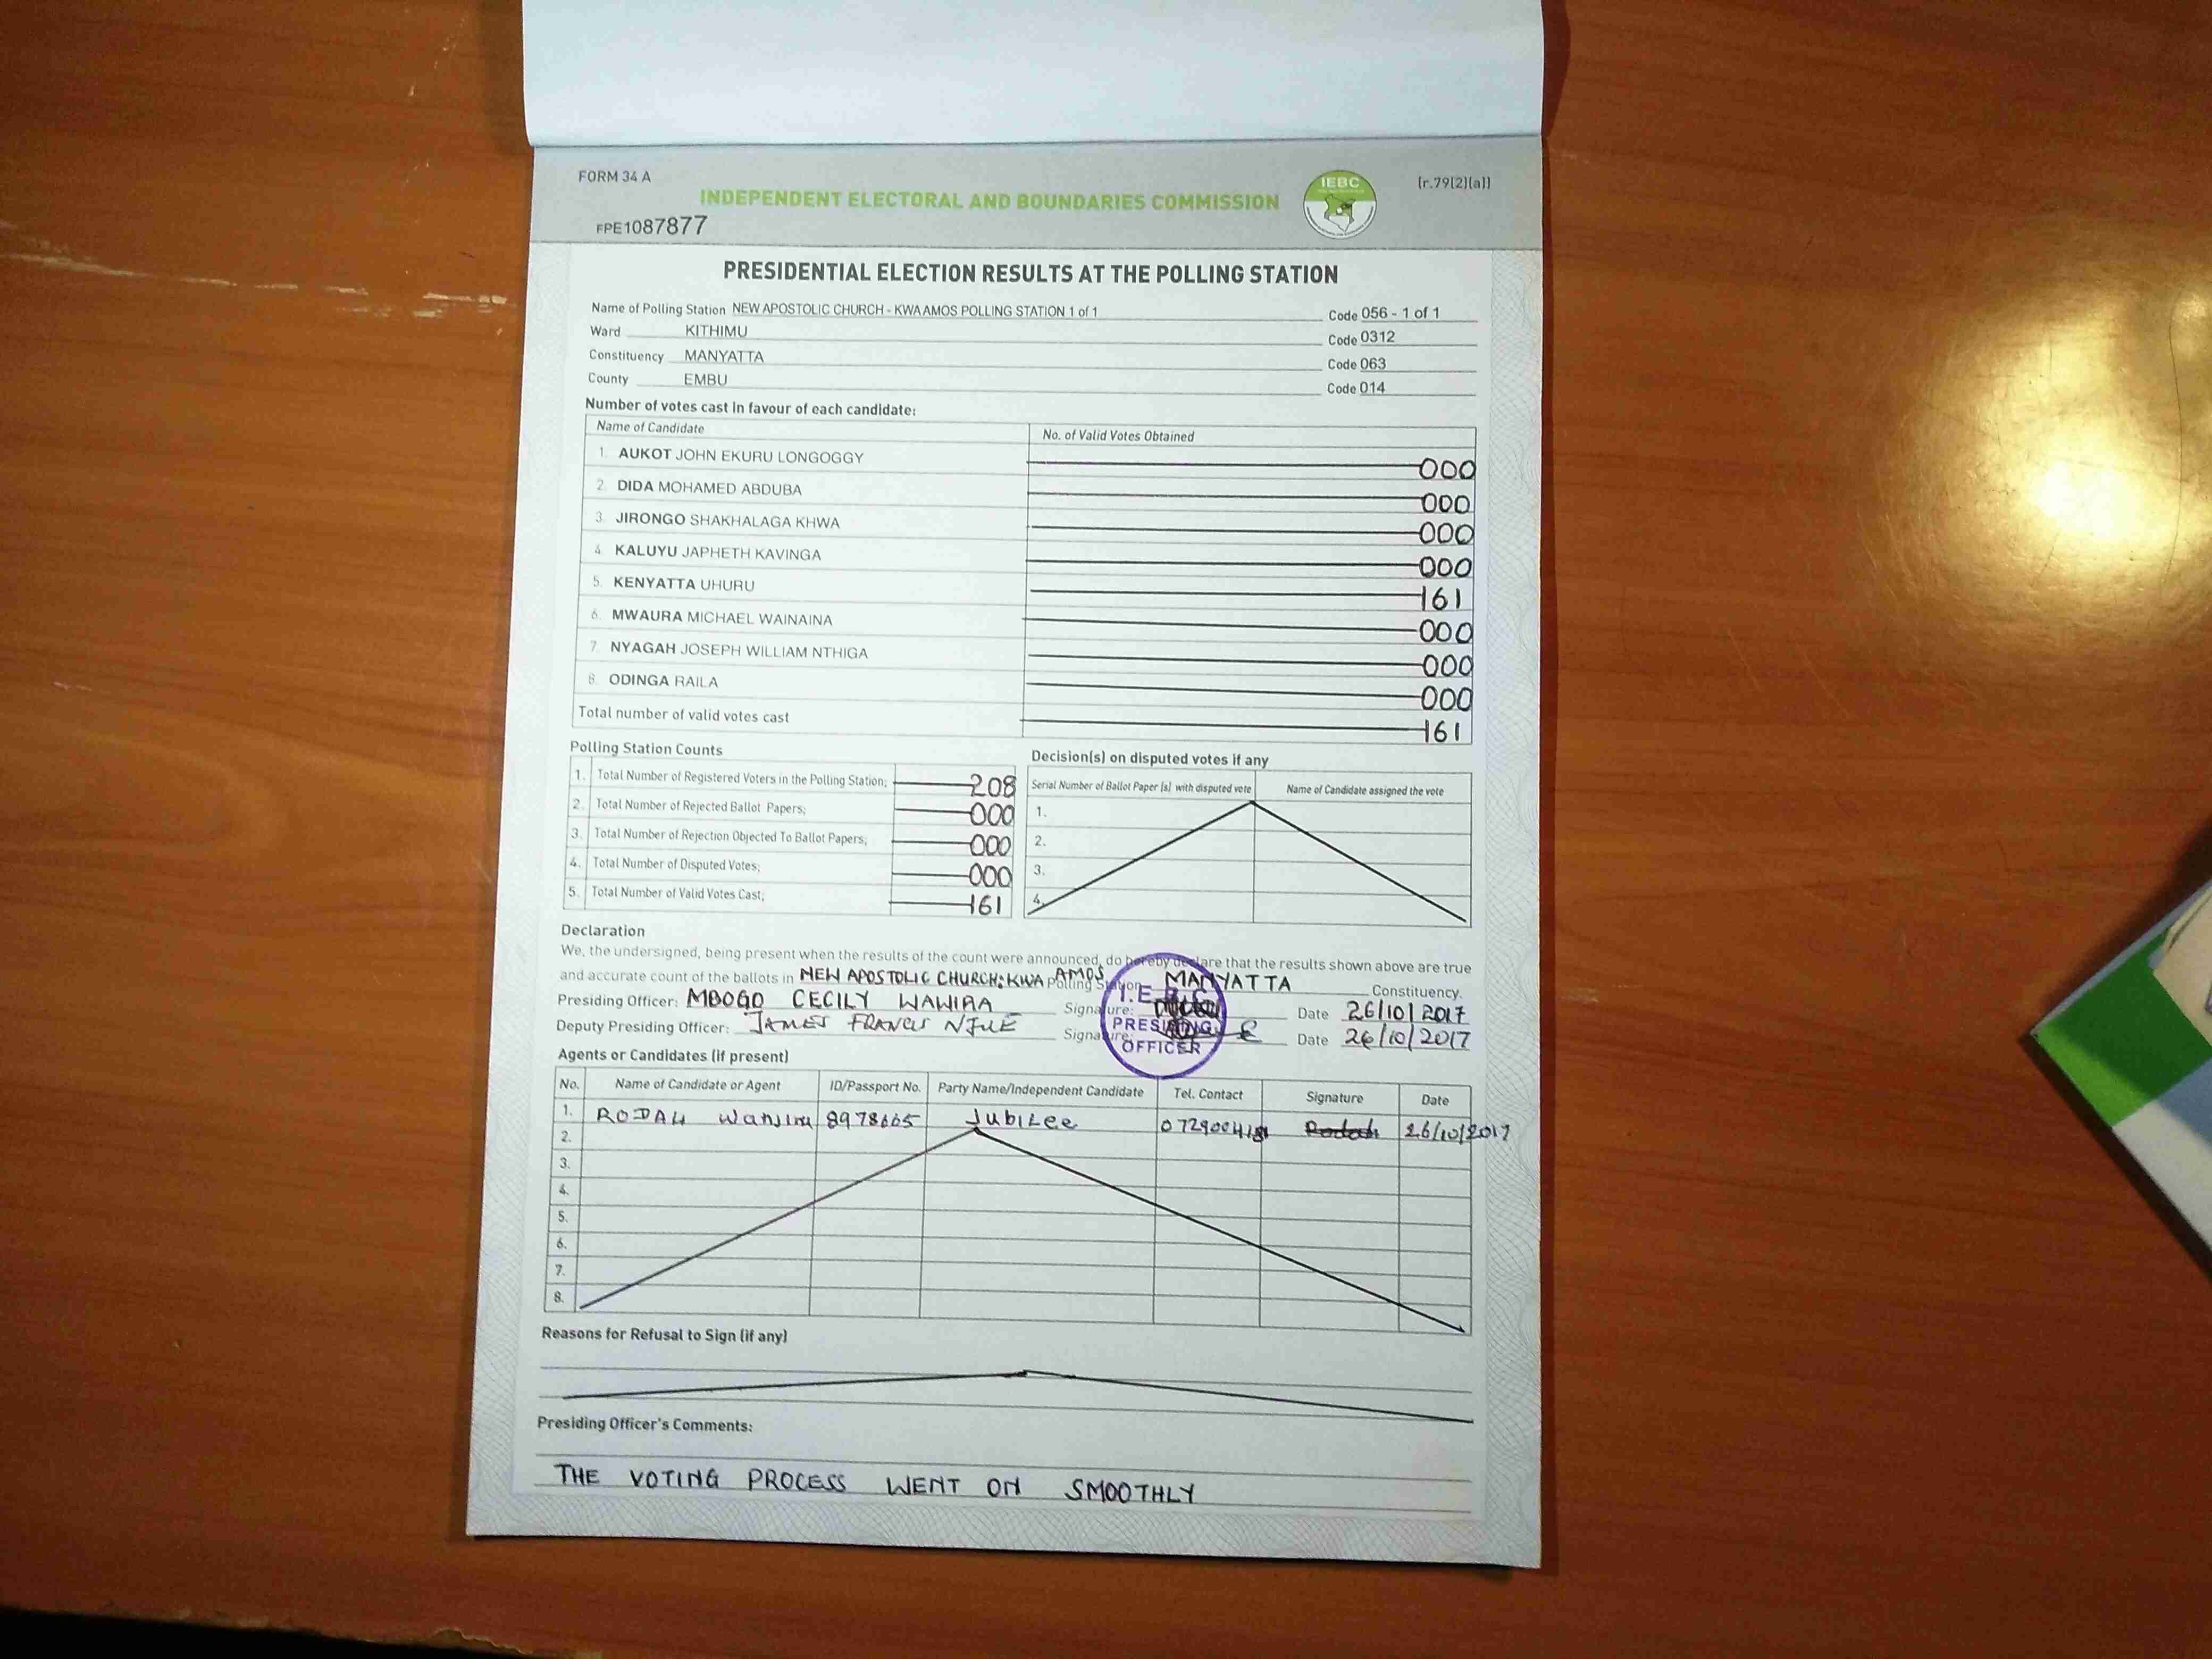 FORM 34 A
INDEPENDENT ELECTORAL AND BOUNDARIES COMMISSION
IEBC
(r.79(2)(a))
FPE1087877
PRESIDENTIAL ELECTION RESULTS AT THE POLLING STATION
Name of Polling Station NEW APOSTOLIC CHURCH - KWA AMOS POLLING STATION 1 of 1 Code 056 - 1 of 1
Ward KITHIMU Code 0312
Constituency MANYATTA Code 063
County EMBU Code 014
Number of votes cast in favour of each candidate:
Name of Candidate No. of Valid Votes Obtained
1. AUKOT JOHN EKURU LONGOGGY 000
2. DIDA MOHAMED ABDUBA 000
3. JIRONGO SHAKHALAGA KHWA 000
4. KALUYU JAPHETH KAVINGA 000
5. KENYATTA UHURU 161
6. MWAURA MICHAEL WAINAINA 000
7. NYAGAH JOSEPH WILLIAM NTHIGA 000
8. ODINGA RAILA 000
Total number of valid votes cast 161
Polling Station Counts
1. Total Number of Registered Voters in the Polling Station; 208
2. Total Number of Rejected Ballot Papers; 000
3. Total Number of Rejection Objected To Ballot Papers; 000
4. Total Number of Disputed Votes; 000
5. Total Number of Valid Votes Cast; 161
Decision(s) on disputed votes if any
Serial Number of Ballot Paper (s) with disputed vote Name of Candidate assigned the vote
1.
2.
3.
4.
Declaration
We, the undersigned, being present when the results of the count were announced, do hereby declare that the results shown above are true
and accurate count of the ballots in NEW APOSTOLIC CHURCH: KWA AMOS Polling Station MANYATTA Constituency.
Presiding Officer: MBOGO CECILY WAWIRA Signature: Date 26/10/2017
Deputy Presiding Officer: JAMES FRANCIS NJUE Signature: Date 26/10/2017
I.E.B.C
PRESIDING
OFFICER
Agents or Candidates (if present)
No. Name of Candidate or Agent ID/Passport No. Party Name/Independent Candidate Tel. Contact Signature Date
1. RODAH Wanjiru Jubilee Rodah 26/10/2017
2.
3.
4.
5.
6.
7.
8.
Reasons for Refusal to Sign (if any)
Presiding Officer's Comments:
THE VOTING PROCESS WENT ON SMOOTHLY